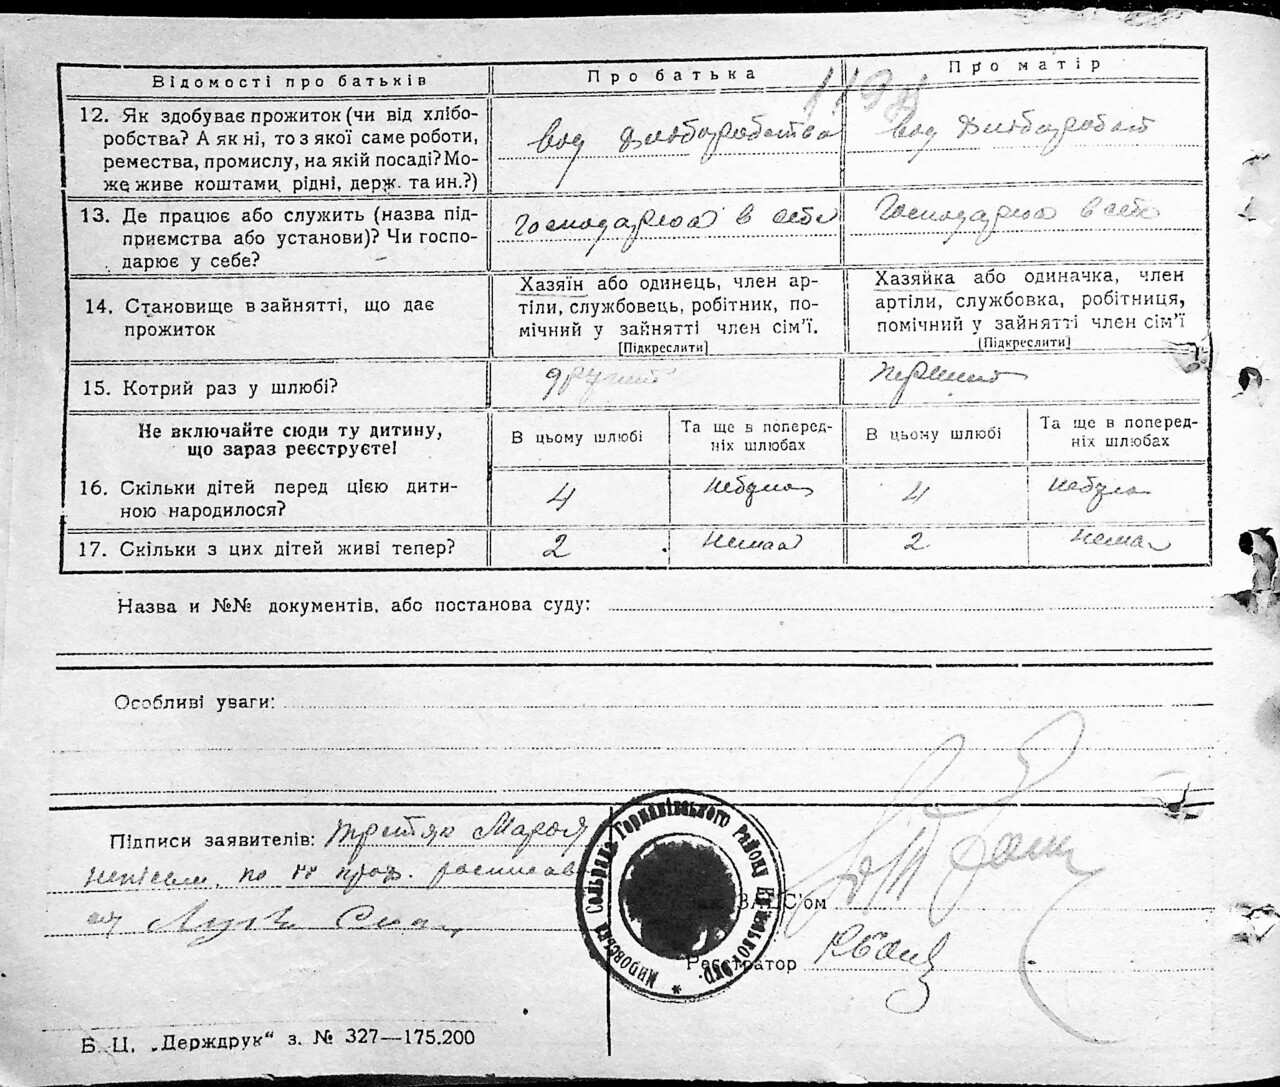 Відомості про батьків
Про батька
Про матір
12. Як здобуває прожиток (чи від хлібо-
робства? А як ні, то з якої саме роботи,
ремества, промислу, на якій посаді? Мо-
же живе коштами рідні, держ. та ин.?)
вод Хлиборобства
вод Хлиборобст
13. Де працює або служить (назва під-
приємства або установи)? Чи госпо-
дарює у себе?
Господарюї в себе
Господарюї в себе
14. Становище в зайнятті, що дає
прожиток
Хазяїн або одинець, член ар-
тіли, службовець, робітник, по-
мічний у зайнятті член сім'ї.
[Підкреслити]
Хазяйка або одиначка, член
артіли, службовка, робітниця,
помічний у зайнятті член сім'ї
[Підкреслити]
15. Котрий раз у шлюбі?
другий
перший
Не включайте сюди ту дитину,
що зараз реєструєте!
В цьому шлюбі
Та ще в поперед-
ніх шлюбах
В цьому шлюбі
Та ще в поперед-
ніх шлюбах
16. Скільки дітей перед цією дити-
ною народилося?
4
небуло
4
небуло
17. Скільки з цих дітей живі тепер?
2
немає
2
нема
Назва и №№ документів, або постанова суду:
Особливі уваги:
Підписи заявителів: Третяк Марія
неписьм. по її прозь. росписав
Зав. ЗАГС'ом
Реєстратор
Мировська Сільрада Германівського Району Київської окр.
Б. Ц. „Держдрук“ з. № 327—175.200